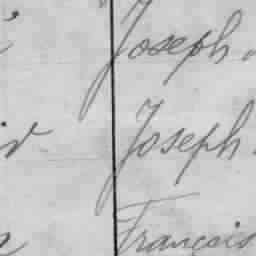 Joseph
Joseph
François